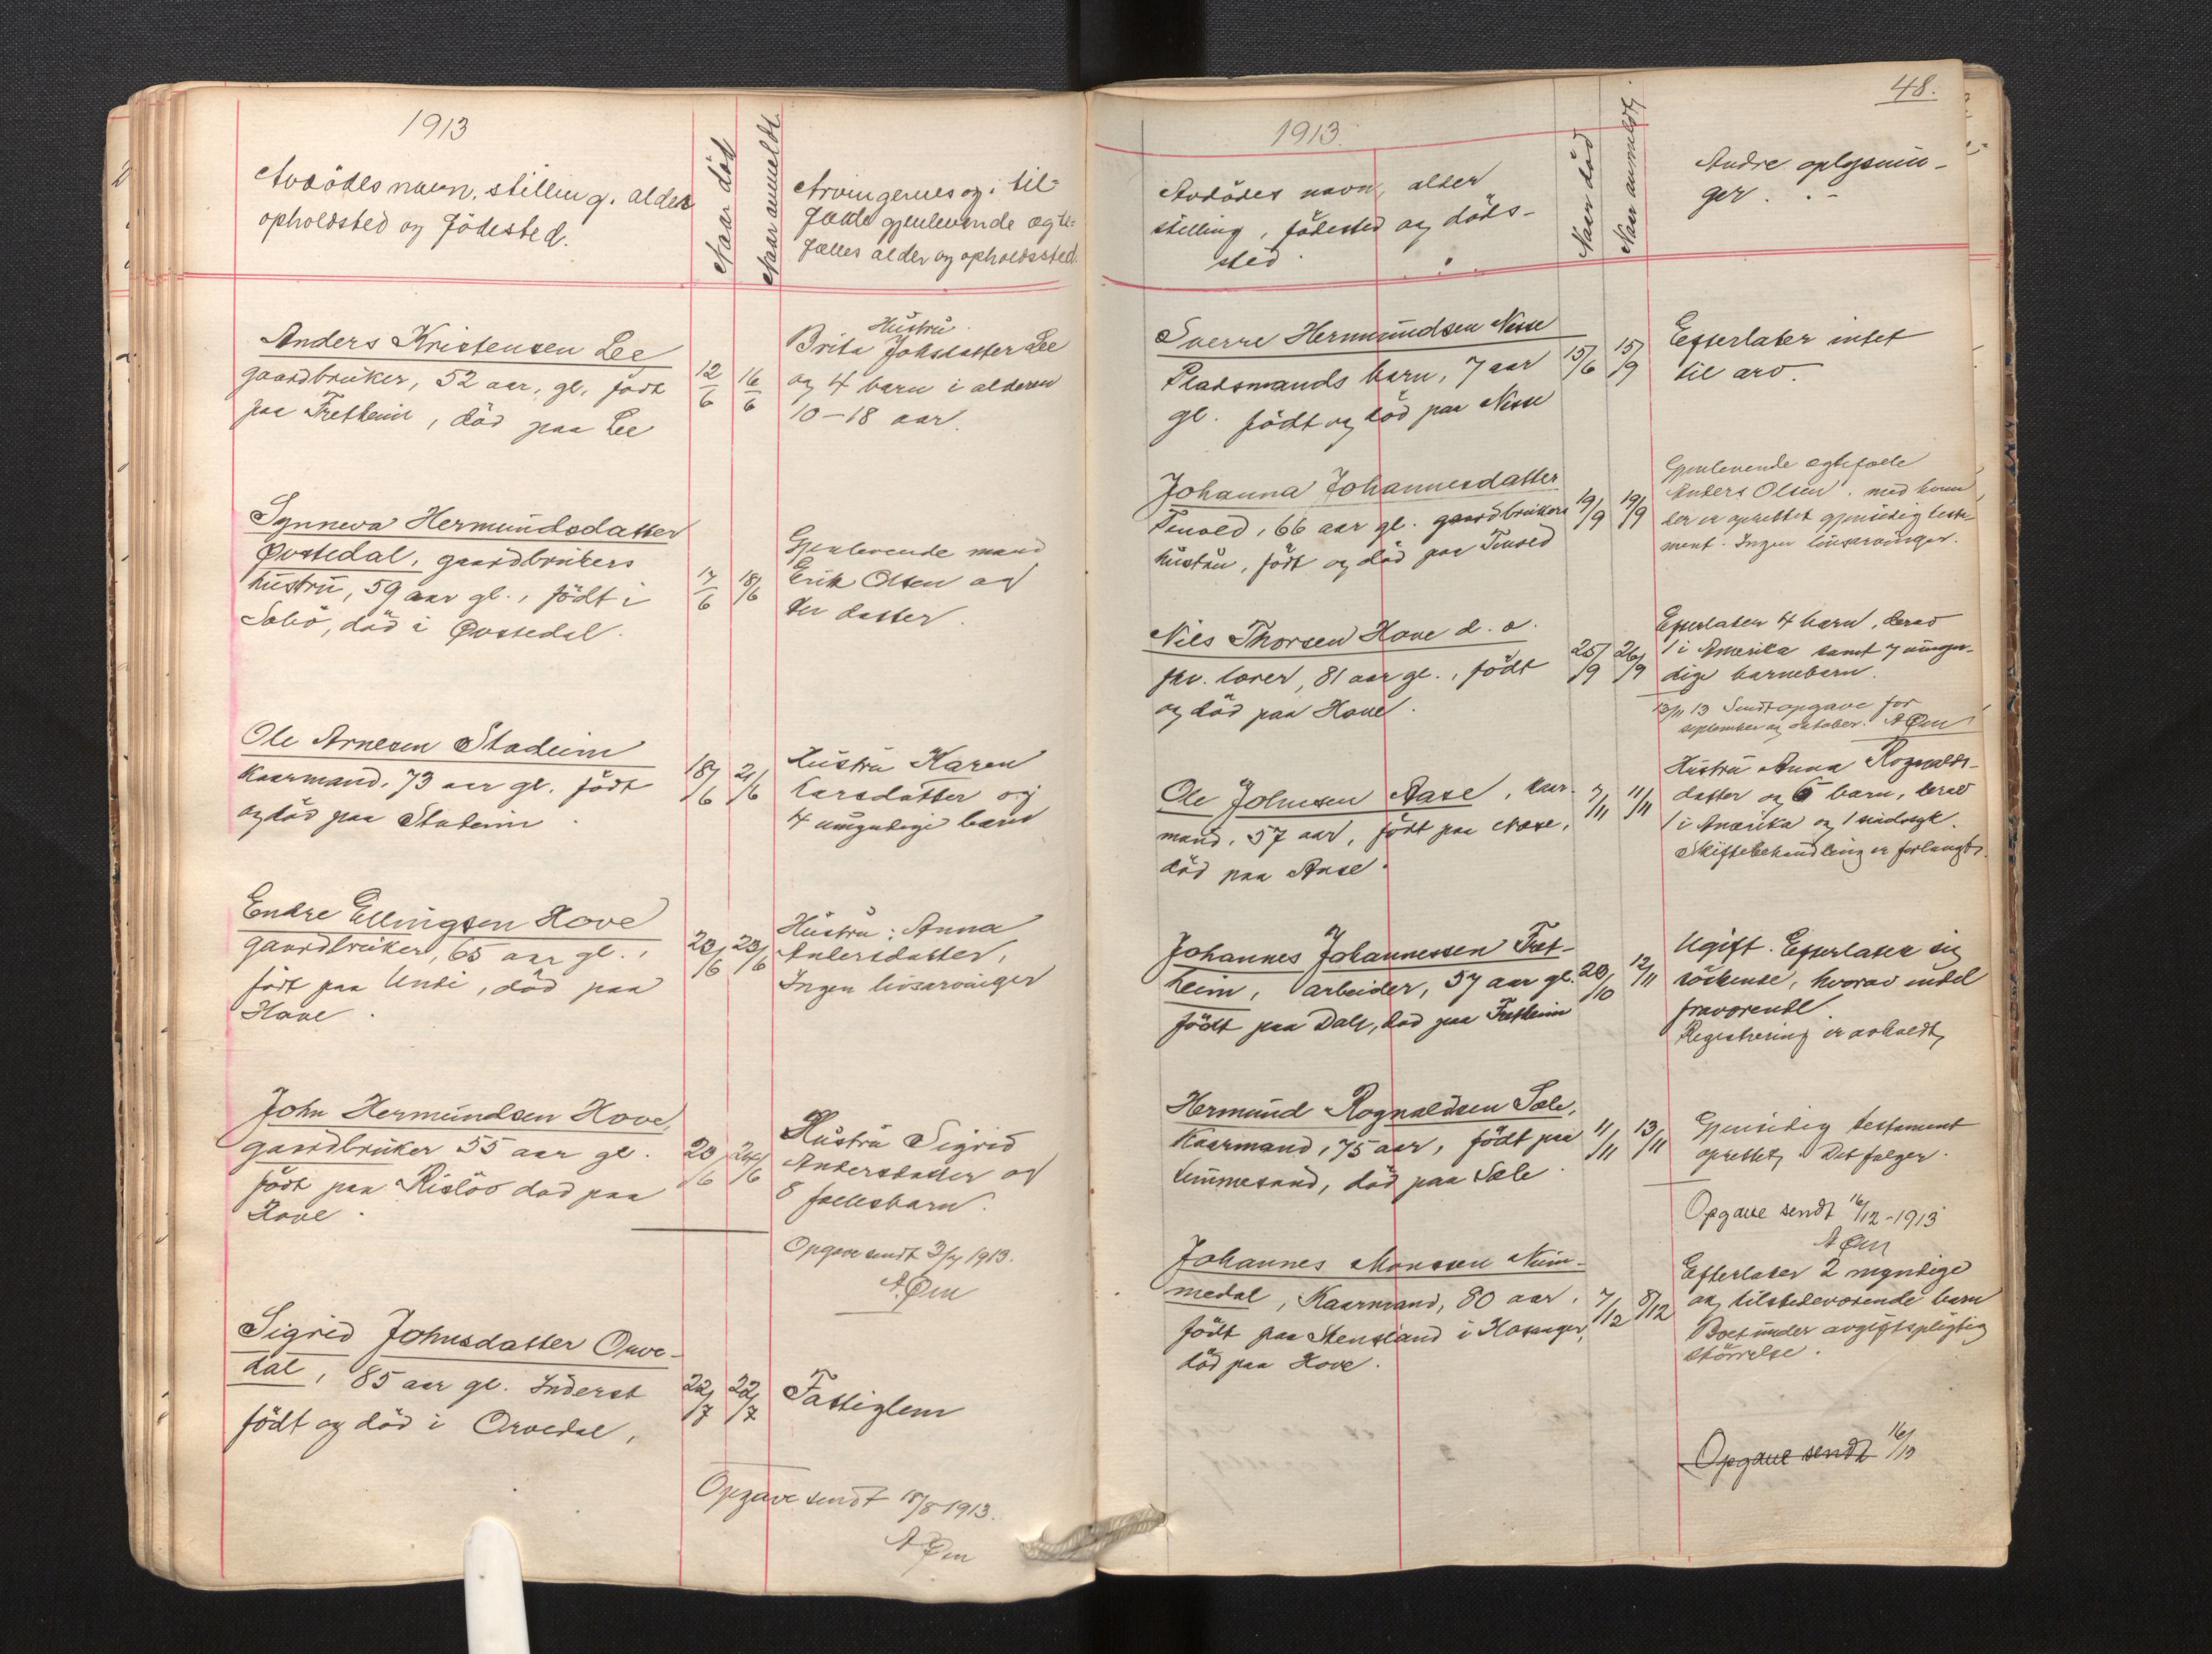 1913
Avdödes navn, stilling, alder
opholdsted og födested.
Naar död
Naar anmeldt.
Arvingernes og i til-
fælde gjenlevende ægte-
fælles alder og opholdssted.
Anders Kristensen Lee
gaardbruker, 52 aar, gl., född
paa Fretheim, död paa Lee
12/6
16/6
Hustru
Brita Johsdatter Lee
og 4 barn i alderen
10-18 aar.
Synneva Hermundsdatter
Øvstedal, gaardbrukers
hustru, 59 aar gl., födt i
död i Øvstedal.
17/6
18/6
Gjenlevende mand
Erik Olsen og
en datter.
Ole Arnesen Stadeim
Kaarmand, 73 aar gl. födt
og död paa Stadeim.
18/6
21/6
Hustru Karen
Larsdatter og
4 umyndige barn
Endre Ellingsen Hove
gaardbruker, 65 aar gl.,
födt paa Undi, död paa
Hove.
20/6
23/6
Hustru: Anna
Andersdatter,
Ingen livsarvinger
John Hermundsen Hove,
gaardbruker 55 aar gl.
födt paa Rislöv död paa
Hove.
23/6
24/6
Hustru Sigrid
Andersdatter og
8 fællesbarn.
Opgave sendt 3/7 1913.
A Øen
Sigrid Johnsdatter Orve-
dal, 85 aar gl. Inderst
födt og död i Orvedal,
22/7
22/7
Fattiglem
Opgave sendt 18/8 1913.
A Øen
48.
1913.
Avdödes navn, alder
stilling, födested og döds-
sted.
Naar död
Naar anmeldt.
Andre oplysnin-
ger.
Sverre Hermundsen Nesse
Pladsmands barn, 7 aar
gl. födt og död paa Nesse
15/6
15/9
Efterlater intet
til arv.
Johanna Johannesdatter
Tenold, 66 aar gl. gaardbrukers
hustru, födt og död paa Tenold
19/9
19/9
Gjenlevende ægtefælle
Anders Olsen, med hvem
der er oprettet gjensidig testa-
ment. Ingen livsarvinger.
Nils Thorsen Hove d. o.
fhv. lærer, 81 aar gl., födt
og död paa Hove.
25/9
26/9
Efterlater 4 barn, derav
1 i Amerika samt 7 umyn-
dige barnebarn.
13/11 13 Sendt opgave for
september og oktober. A Øen
Ole Johnsen Aase, kaar-
mand, 57 aar, födt paa Næse,
död paa Aase.
7/11
11/11
Hustru Anna Rognalds-
datter og 6 barn, derav
1 i Amerika og 1 sindssyk.
Skiftebehandling er forlangt.
Johannes Johannessen Fret-
heim, arbeider, 57 aar gl.
födt paa Dale, död paa Fretheim
20/10
12/11
Ugift. Efterlater sig
söskende, hvorav endel
fraværende.
Registrering er avholdt,
Hermund Rognaldsen Sæle,
Kaarmand, 75 aar, födt paa
Nummesund, död paa Sæle.
11/11
13/11
Gjensidig testament
oprettet. Det følger.
Opgave sendt 16/12-1913
A Øen
Johannes Monssen Num-
medal, Kaarmand, 80 aar.
födt paa Stensland i Hosanger,
död paa Hove.
7/12
8/12
Efterlater 2 myndige
og tilstedeværende barn
Boet under avgiftspligtig
störrelse.
Opgave sendt 16/12